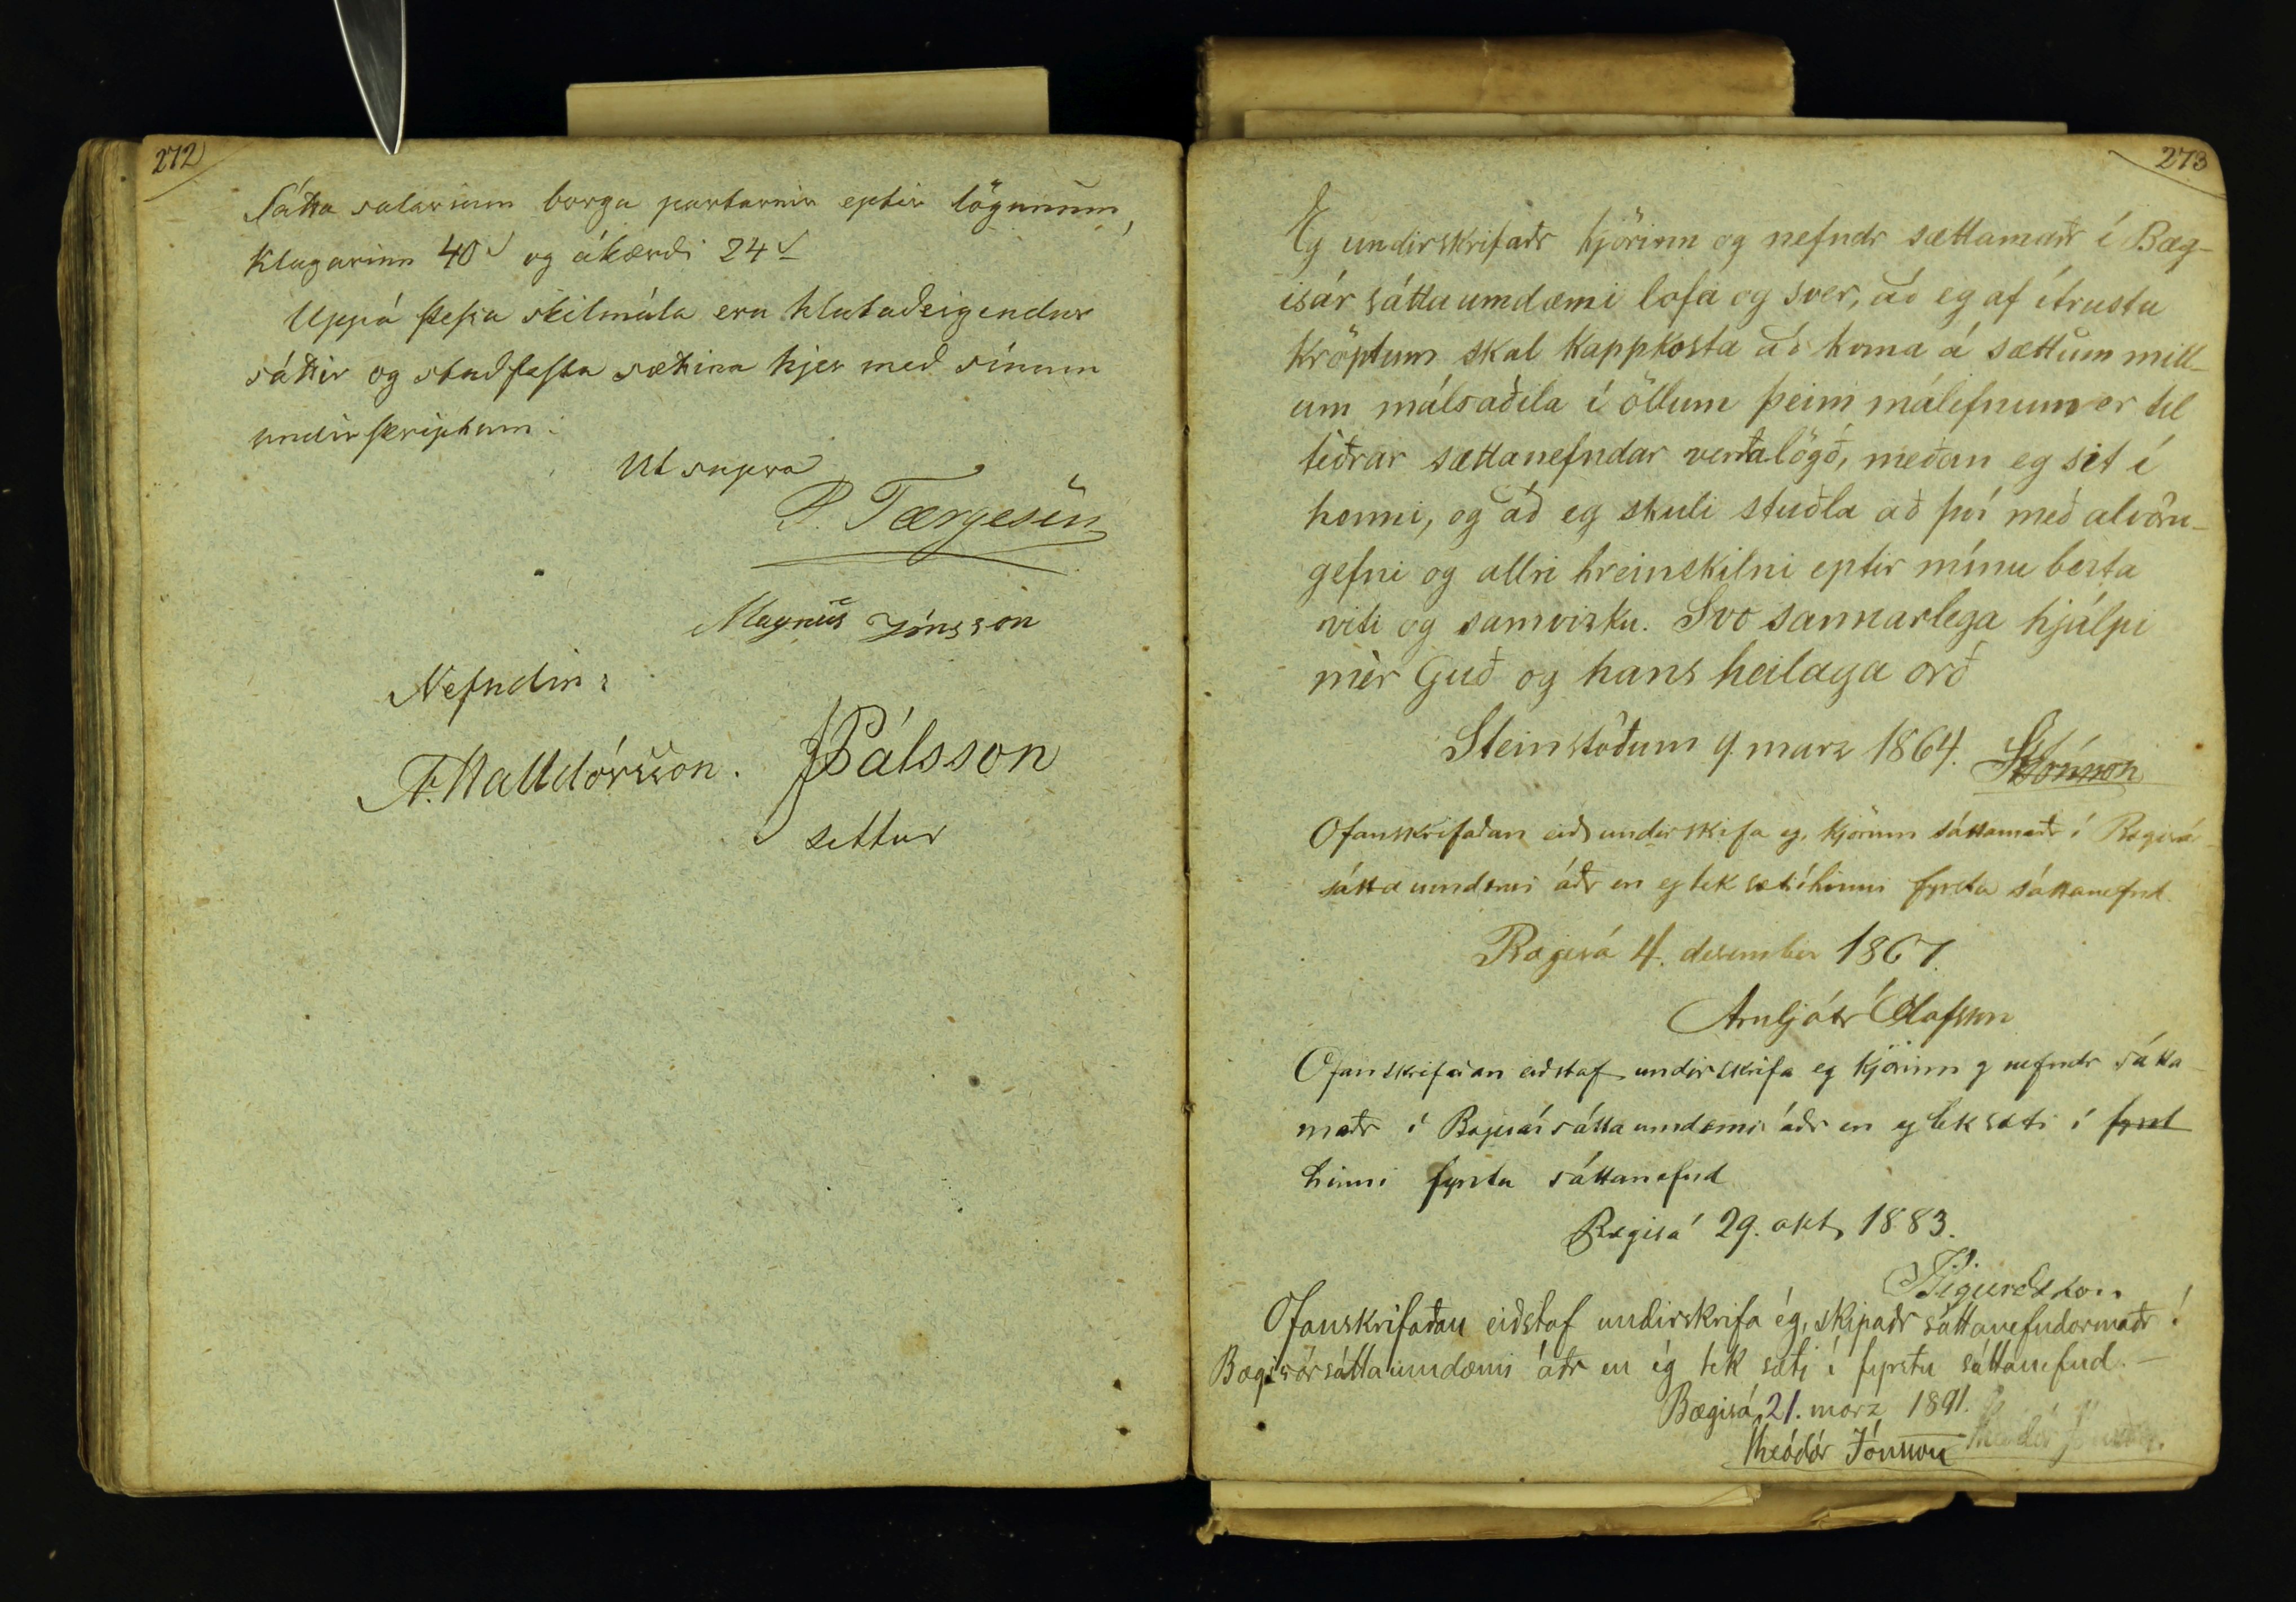 272
Sátta salarium borga partarnir eptir lögunum,
Klagarinn 40 og ákærdi 24
Uppá þeſsa skilmála eru hlutaðeigendur
sáttir og staðfeſta sættina hjer með sínum
undirſkriptum.
Ut supra
P. Tærgesen
Magnús Jónsson
Nefndin:
F. Halldórsson. JPálsson
settur
273
Eg undirskrifaðr kjörinn og nefndr sættamaðr í Bæg-
isár sáttaumdæmi lofa og sver, að eg af ítrustu
kröptum skal kappkosta að koma á sættum mill-
um málsaðila í öllum þeim málefnum er til
téðrar sættanefndar verða lögð, meðan eg sit í
henni, og að eg skuli stuðla að því með alvöru-
gefni og allri hreinskilni eptir mínu bezta
viti og samvizku. Svo sannarlega hjálpi
mèr Guð og hans heilaga orð
Steinstöðum 9. marz 1864.
Ofanskrifaðan eið undirskifa eg, kjörinn sáttamaðr í Bægisár-
sáttaumdæmi áðr en eg tek sæti í hinni fyrstu sáttanefnd.
Bægisá 4. desember 1867.
Arnljótr Ólafsson
Ofanskrifaðan eiðstaf undirskrifa eg kjörinn og nefndr sátta-
maðr í Bægisársáttaumdæmi áðr en eg tek sæti í fyrst
hinni fyrstu sáttanefnd
Bægisá 29. okt. 1883.
Sigurðsson
Ofanskrifaðan eiðstaf undirskrifa ég, skipaðr sáttanefndarmaðr í
Bægisársáttaumdæmi áðr en ég tek sæti í fyrstu sáttanefnd. —
Bægisá, 21. marz 1891.
Theódór Jónsson